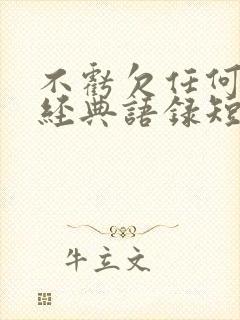 不虧欠任何
經典語録短
牛立文